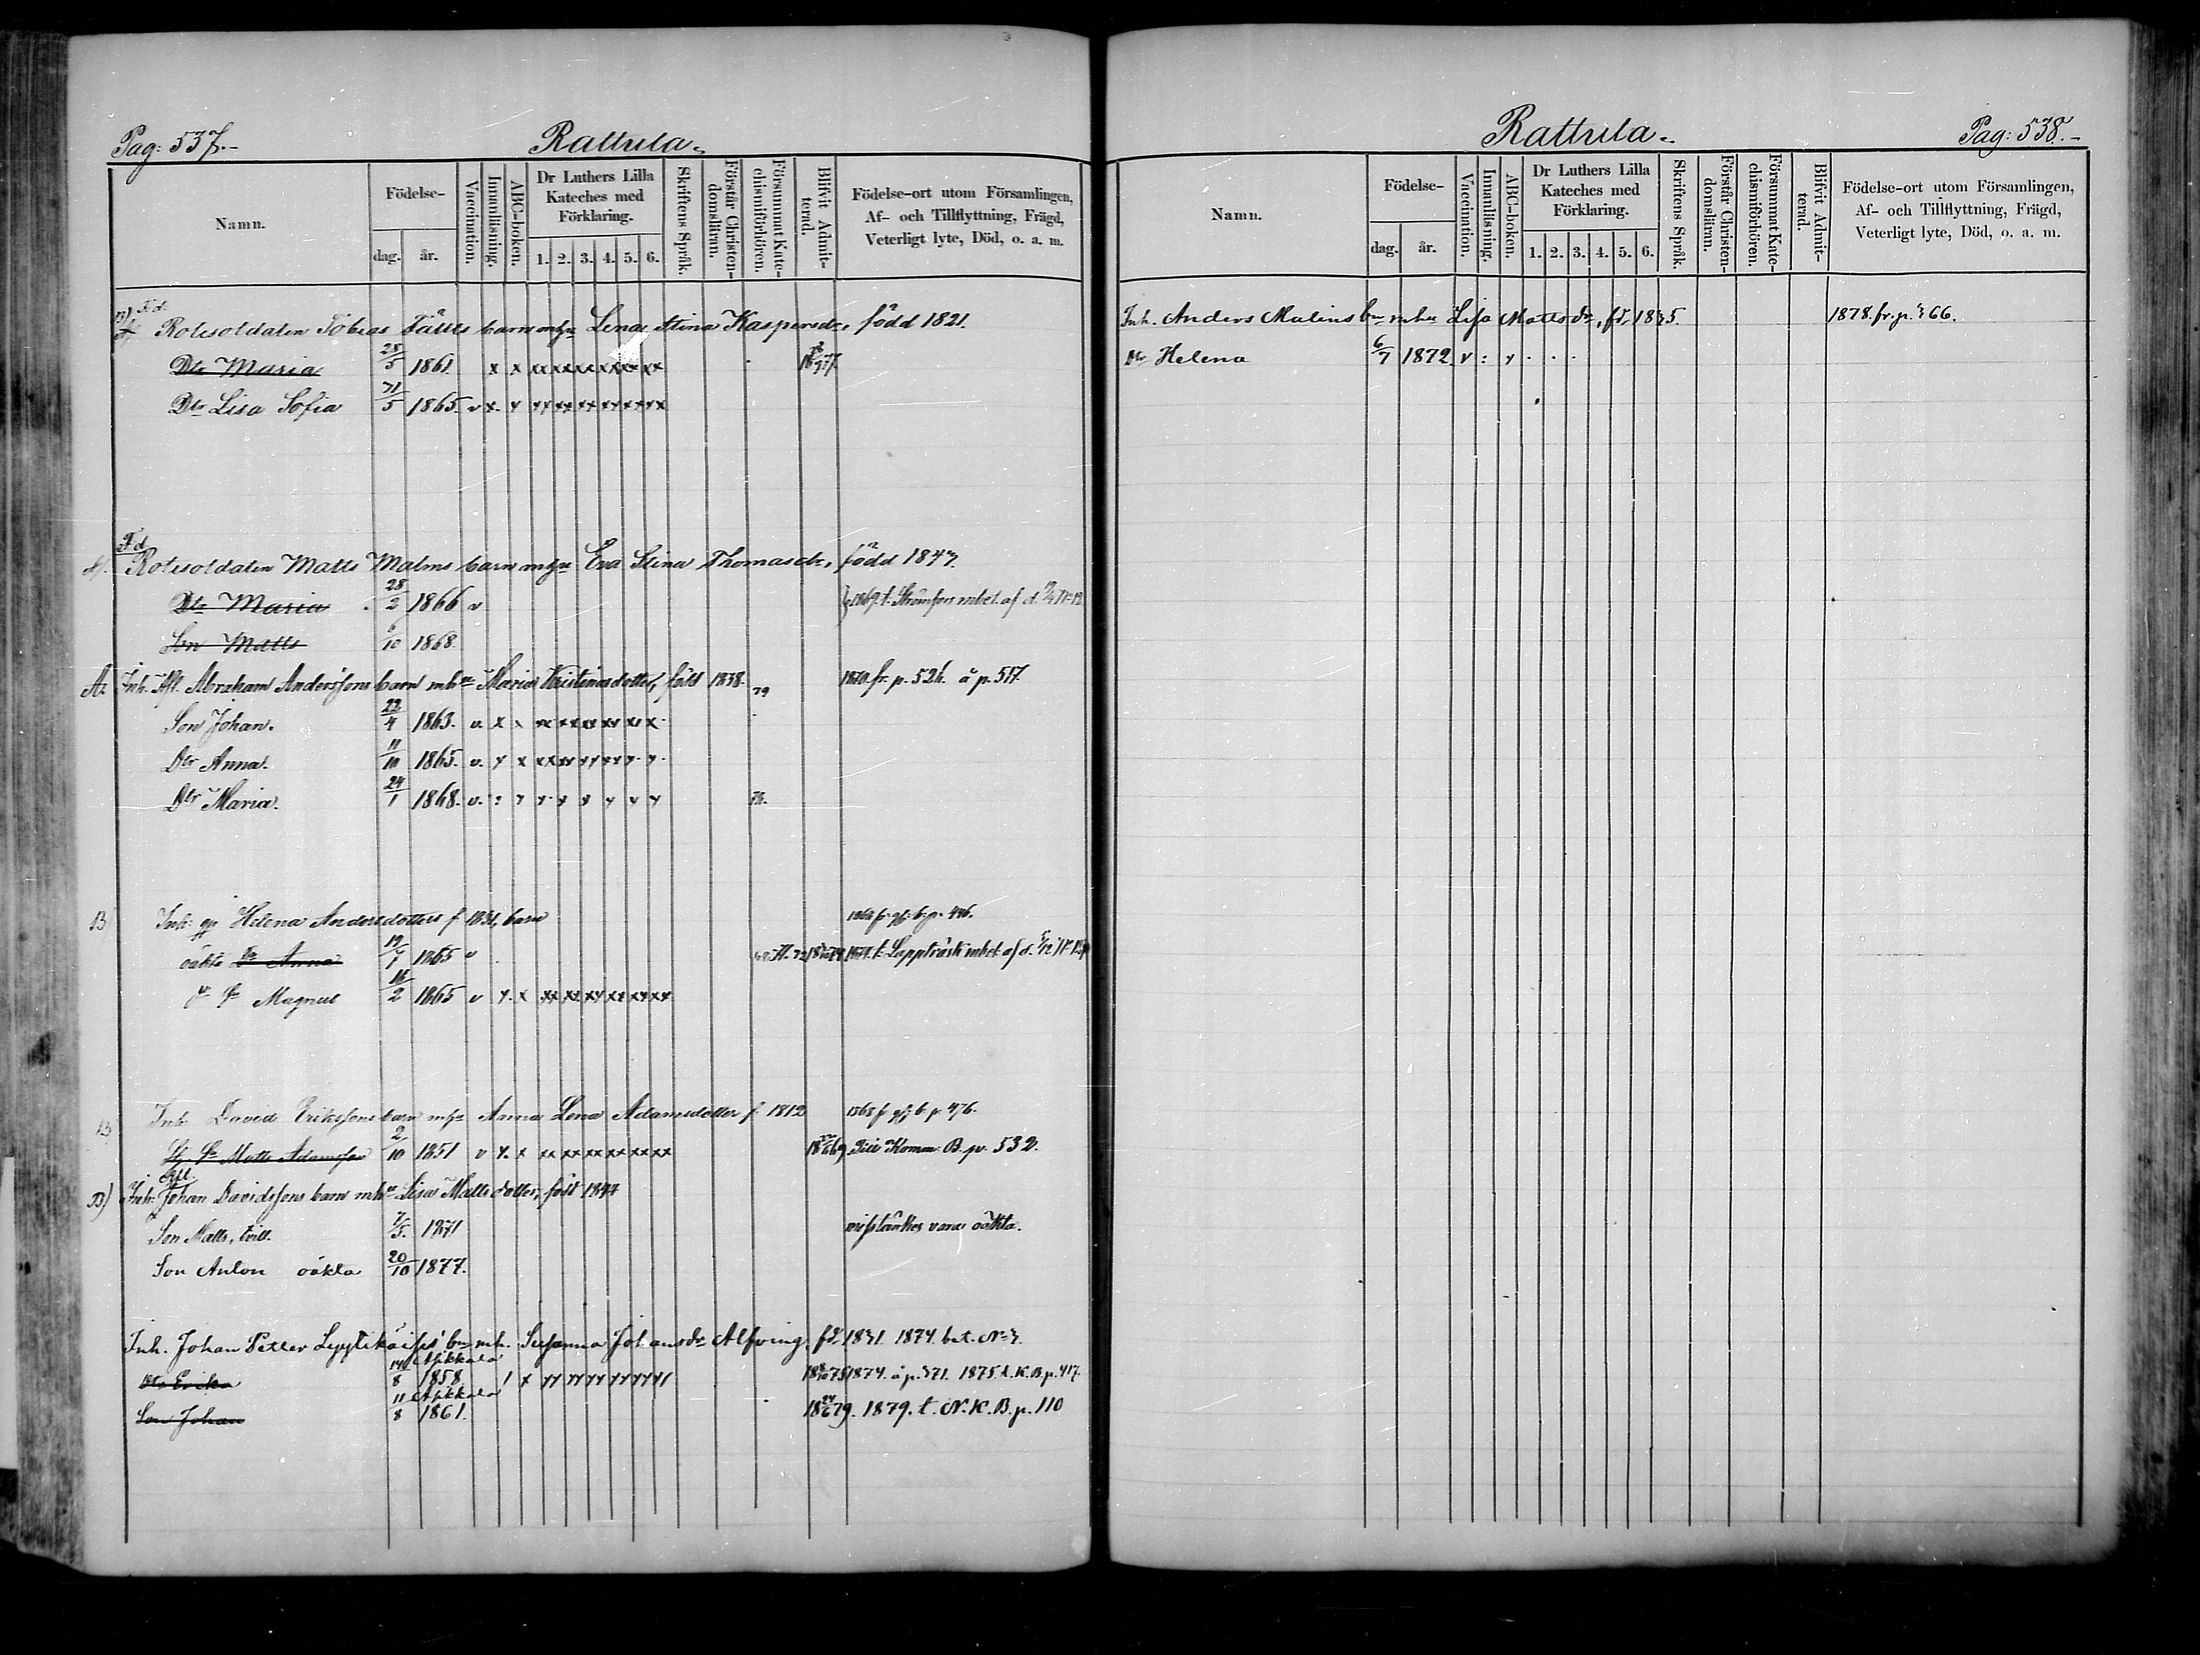 Pag: 537.-
Rattula.
Namn.
Födelse-
dag.
år.
Vaccination.
Innanläsning.
ABC-boken.
Dr Luthers Lilla
Kateches med
Förklaring.
1. 2. 3. 4. 5. 6.
Skriftens Språk.
Förstår Christen-
domsläran.
Försummat Kate-
chismiförhören.
Blifvit Admit-
terad.
Födelse-ort utom Församlingen,
Af- och Tillflyttning, Frägd,
Veterligt lyte, Död, o. a. m.
B) F d.
Rotesoldaten Tobias barn Lena Stina Kaspersdr, född 1821.
Dtr Maria 28/5 1861. x x xx xx xx xx xx xx
Dtr Lisa Sofia 1865. v x. x xx xx xx xx xx xx
F d
Rotesoldaten Matts Malms barn Eva Stina Thomasdr, född 1843.
Dtr Maria 28/2 1866 v 1869. t. mbet. af d.
Son Matts 1868.
A. Inh. Afl. Abraham Anderssons barn mhu Maria Kristinas dotter, född 1838. 79 1870 fr. p. 526. å p. 517.
Son Johan. 22/4 1863. v. x
Dtr Anna. 11/10 1865. v. x x
Dtr Maria. 24/1 1868. v. : x x x x x x x
B) Inh: Helena Andersdotters f. 1831, barn
oäkta Dr Anna 1865 v t. Lappträsk mbet af d.
Magnus 16/2 1865 v x. x xx xx xx xx xx xx
B Inh. David Erikssons barn Anna Lena Adamsdotter f. 1812
Matts Adamsson 2/10 1851 v x. x xx xx xx xx xx xx Till Komm: B. p. 532.
B) Inh. Johan Davidssons barn mhu Lisa Matts dotter, född 1844
Son Matts, tvill. 7/5. 1871 misstänkes vara oäkta.
Son Anton oäkta 20/10 1877.
Inh. Johan Petter bn mh. Susanna Johansdr Alfving. fd. 1831. 1874. bet. No 3.
Dtr Erika 14/8 1858. 1874. å p. 371. 1875. t. K. B. p. 417.
Son Johan 11/8 1861. 1879. t. N. K. B. p. 110
Rattula.
Pag: 538.-
Namn.
Födelse-
dag.
år.
Vaccination.
Innanläsning.
ABC-boken.
Dr Luthers Lilla
Kateches med
Förklaring.
1. 2. 3. 4. 5. 6.
Skriftens Språk.
Förstår Christen-
domsläran.
Försummat Kate-
chismiförhören.
Blifvit Admit-
terad.
Födelse-ort utom Församlingen,
Af- och Tillflyttning, Frägd,
Veterligt lyte, Död, o. a. m.
Inh. Anders Malins bn mhu Lisa Mattsdr, fd. 1835. 1878. fr. p. 366.
Dr Helena 6/7 1872. v : x . . .